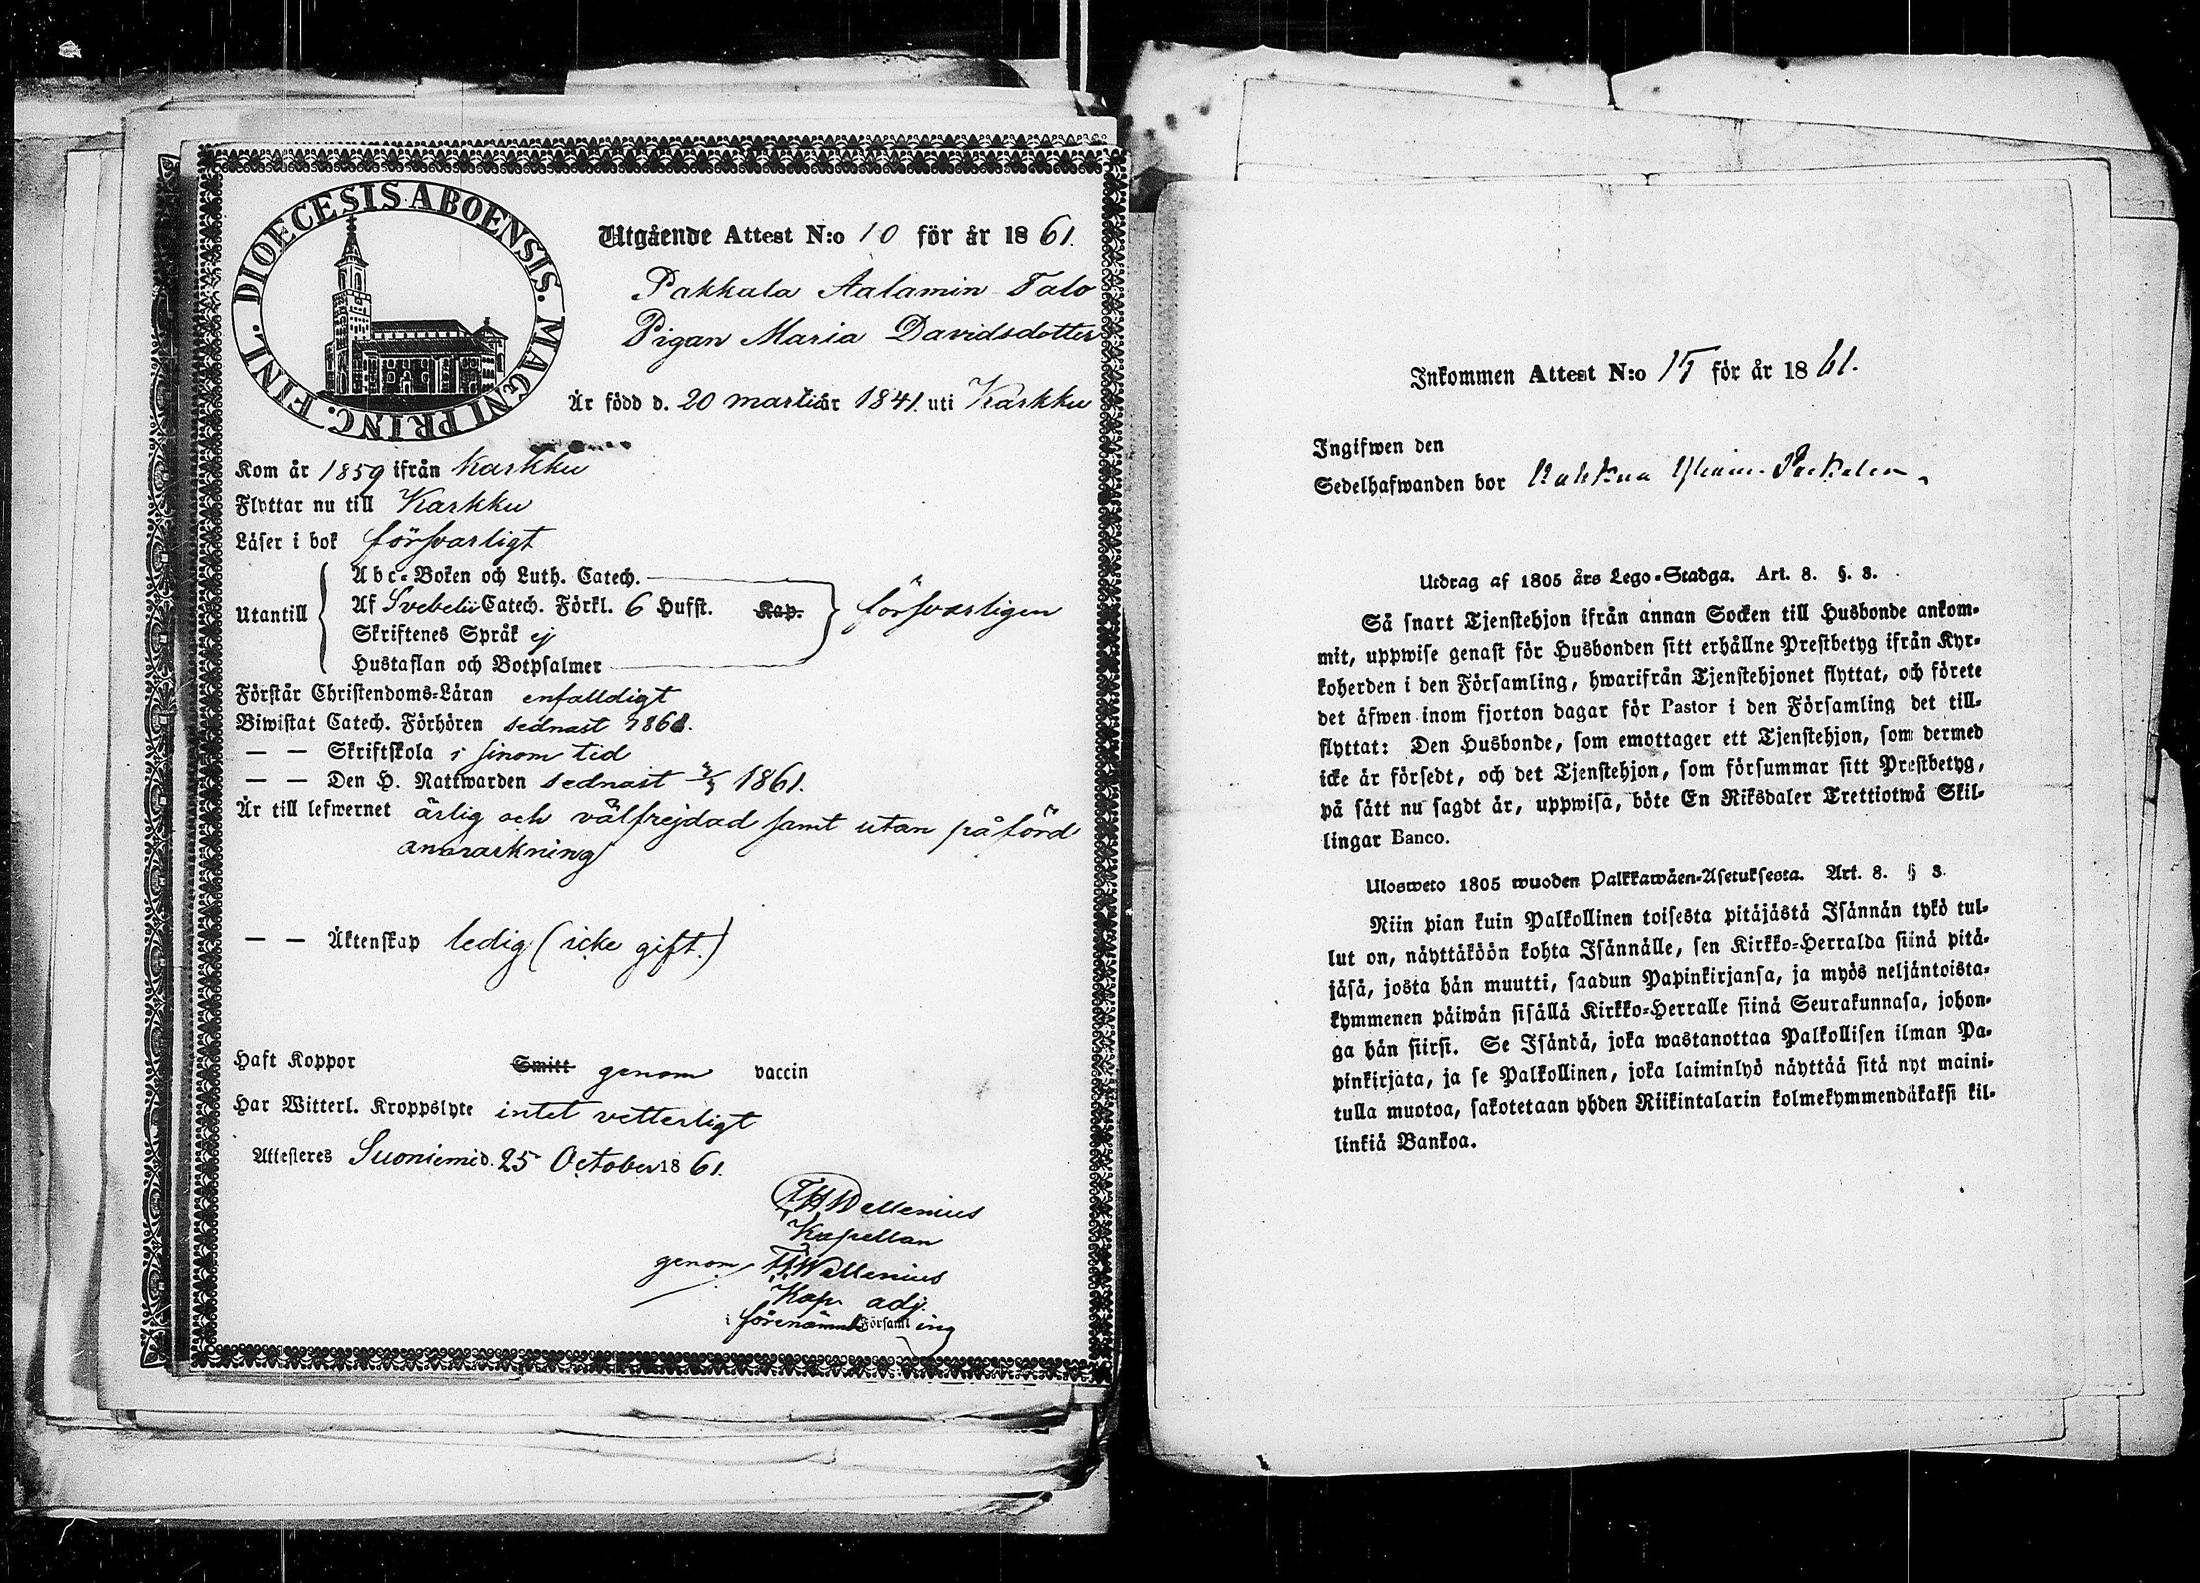 DIOECESIS ABOENSIS. MAGNI PRINC. FINL.
Utgående Attest N:o 10 för år 1861.
Pakkala Aalamin Talo
Pigan Maria Davidsdotter
Är född d. 20 martii år 1841. uti Karkku
Kom år 1859 ifrån Karkku
Flyttar nu till Karkku
Läser i bok försvarligt
Abc-Boken och Luth. Catech.
Utantill Af Svebelii Catech. Förkl. 6 Hufst. Kap. försvarligen
Skriftenes Språk ej
Hustaflan och Botpsalmer
Förstår Christendoms-Läran enfalldigt
Biwistat Catech. Förhören sednast 1861.
— — Skriftskola i sinom tid
— — Den H. Nattwarden sednast 1861.
Är till lefwernet ärlig och välfrejdad samt utan påförd
anmärkning
— — Äktenskap ledig (icke gift.)
Haft Koppor Smitt genom vaccin
Har Witterl. Kroppslyte intet vetterligt
Attesteres Suoniemi d. 25 October 1861.
FHWallenius
Kapellan
genom FHWallenius
Kap. adj.
i förenämnd Församling
Inkommen Attest N:o 15 för år 1861.
Ingifwen den
Sedelhafwanden bor
Utdrag af 1805 års Lego-Stadga. Art. 8. §. 3.
Så snart Tjenstehjon ifrån annan Socken till Husbonde ankom-
mit, uppwise genast för Husbonden sitt erhållne Prestbetyg ifrån Kyr-
koherden i den Församling, hwarifrån Tjenstehjonet flyttat, och förete
det äfwen inom fjorton dagar för Pastor i den Församling det till-
flyttat: Den Husbonde, som emottager ett Tjenstehjon, som dermed
icke är försedt, och det Tjenstehjon, som försummar sitt Prestbetyg,
på sätt nu sagdt är, uppwisa, böte En Riksdaler Trettiotwå Skil-
lingar Banco.
Ulosweto 1805 wuoden Palkkawäen-Asetuksesta. Art. 8. § 3.
Niin pian kuin Palkollinen toisesta pitäjästä Isännän tykö tul-
lut on, näyttäköön kohta Isännälle, sen Kirkko-Herralda siinä pitä-
jäsä, josta hän muutti, saadun Papinkirjansa, ja myös neljäntoista-
kymmenen päiwän sisällä Kirkko-Herralle siinä Seurakunnasa, johon-
ga hän siirsi. Se Isändä, joka wastanottaa Palkollisen ilman Pa-
pinkirjata, ja se Palkollinen, joka laiminlyö näyttää sitä nyt maini-
tulla muotoa, sakotetaan yhden Riikintalarin kolmekymmendäkaksi kil-
linkiä Bankoa.